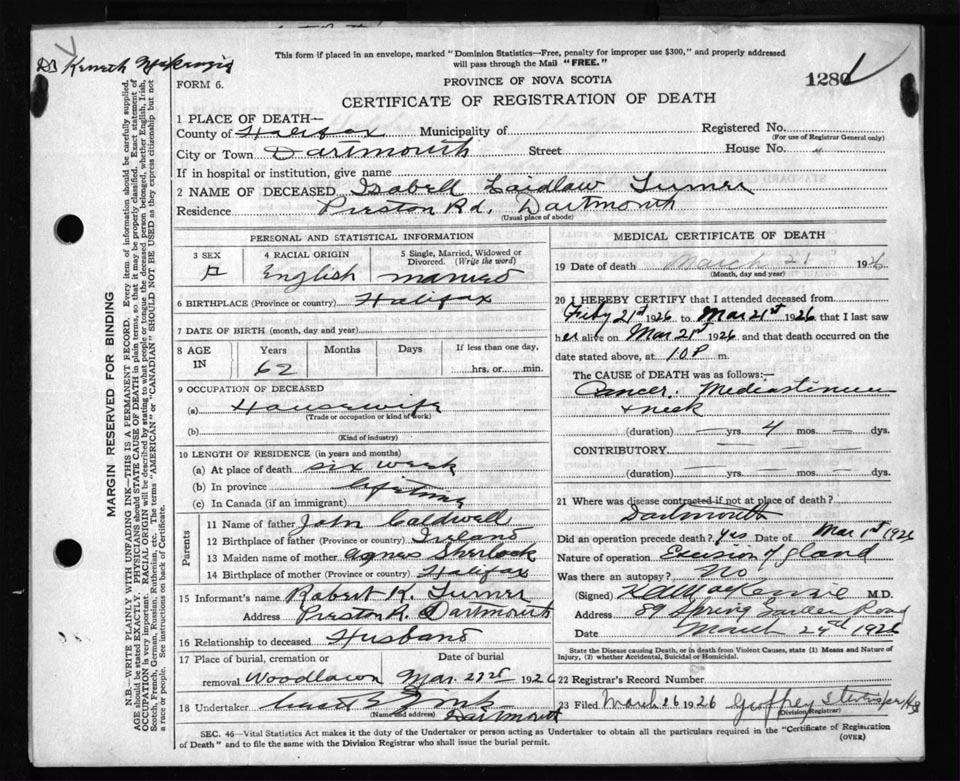 Dr Kenneth McKenzie
This form if placed in an envelope, marked "Dominion Statistics—Free, penalty for improper use $300," and properly addressed
will pass through the Mail "FREE."
FORM 6.
PROVINCE OF NOVA SCOTIA
1280
CERTIFICATE OF REGISTRATION OF DEATH
1 PLACE OF DEATH—
County of Halifax Municipality of Registered No.
(For use of Registrar General only)
City or Town Dartmouth Street House No.
If in hospital or institution, give name
2 NAME OF DECEASED Isabell Laidlaw Turner
Residence Preston Rd, Dartmouth
(Usual place of abode)
PERSONAL AND STATISTICAL INFORMATION
3 SEX 4 RACIAL ORIGIN 5 Single, Married, Widowed or Divorced. (Write the word)
F English married
6 BIRTHPLACE (Province or country) Halifax
7 DATE OF BIRTH (month, day and year)
8 AGE IN Years Months Days If less than one day,
62 hrs. or min.
9 OCCUPATION OF DECEASED
(a) Housewife
(Trade or occupation or kind of work)
(b)
(Kind of industry)
10 LENGTH OF RESIDENCE (in years and months)
(a) At place of death six week
(b) In province lifetime
(c) In Canada (if an immigrant)
Parents
11 Name of father John Caldwell
12 Birthplace of father (Province or country) Ireland
13 Maiden name of mother Agnes Sherlock
14 Birthplace of mother (Province or country) Halifax
15 Informant's name Robert K. Turner
Address Preston R. Dartmouth
16 Relationship to deceased Husband
17 Place of burial, cremation or removal Date of burial
Woodlawn Mar. 23rd 1926
18 Undertaker
(Name and address) Dartmouth
MEDICAL CERTIFICATE OF DEATH
19 Date of death March 21 1926
(Month, day and year)
20 I HEREBY CERTIFY that I attended deceased from
Feby 21st 1926 to Mar 21st 1926 that I last saw
her alive on Mar 21st 1926 and that death occurred on the
date stated above, at 10 P m.
The CAUSE OF DEATH was as follows:—
Cancer. Mediastinum
+ neck
(duration) — yrs. 4 mos. — dys.
CONTRIBUTORY — — —
(duration) — yrs. — mos. — dys.
21 Where was disease contracted if not at place of death?
Dartmouth
Did an operation precede death? yes Date of Mar 1st 1926
Nature of operation Excision of gland
Was there an autopsy? No
(Signed) K A MacKenzie M.D.
Address 89 Spring Garden Road
Date March 24th 1926
State the Disease causing Death, or in death from Violent Causes, state (1) Means and Nature of
Injury, (2) whether Accidental, Suicidal or Homicidal.
22 Registrar's Record Number
23 Filed March 26 1926 Geoffrey
(Division Registrar)
SEC. 46—Vital Statistics Act makes it the duty of the Undertaker or person acting as Undertaker to obtain all the particulars required in the "Certificate of Registration
of Death" and to file the same with the Division Registrar who shall issue the burial permit.
(OVER)
MARGIN RESERVED FOR BINDING
N.B.—WRITE PLAINLY WITH UNFADING INK—THIS IS A PERMANENT RECORD. Every item of information should be carefully supplied.
AGE should be stated EXACTLY. PHYSICIANS should STATE CAUSE OF DEATH in plain terms, so that it may be properly classified. Exact statement of
OCCUPATION is very important. RACIAL ORIGIN will be described by stating to what people or tongue the deceased person belonged, whether English, Irish,
Scotch, French, German, Russian, Ruthenian, etc. The terms "AMERICAN" or "CANADIAN" SHOULD NOT BE USED as they express citizenship but not
a race or people. See instructions on back of Certificate.